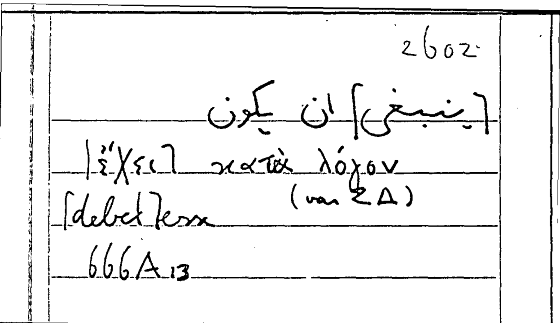 2602
[ينبغى] ان يكون
[ἔχει] κατὰ λόγον
(var ΣΔ)
[debet] esse
666A 13